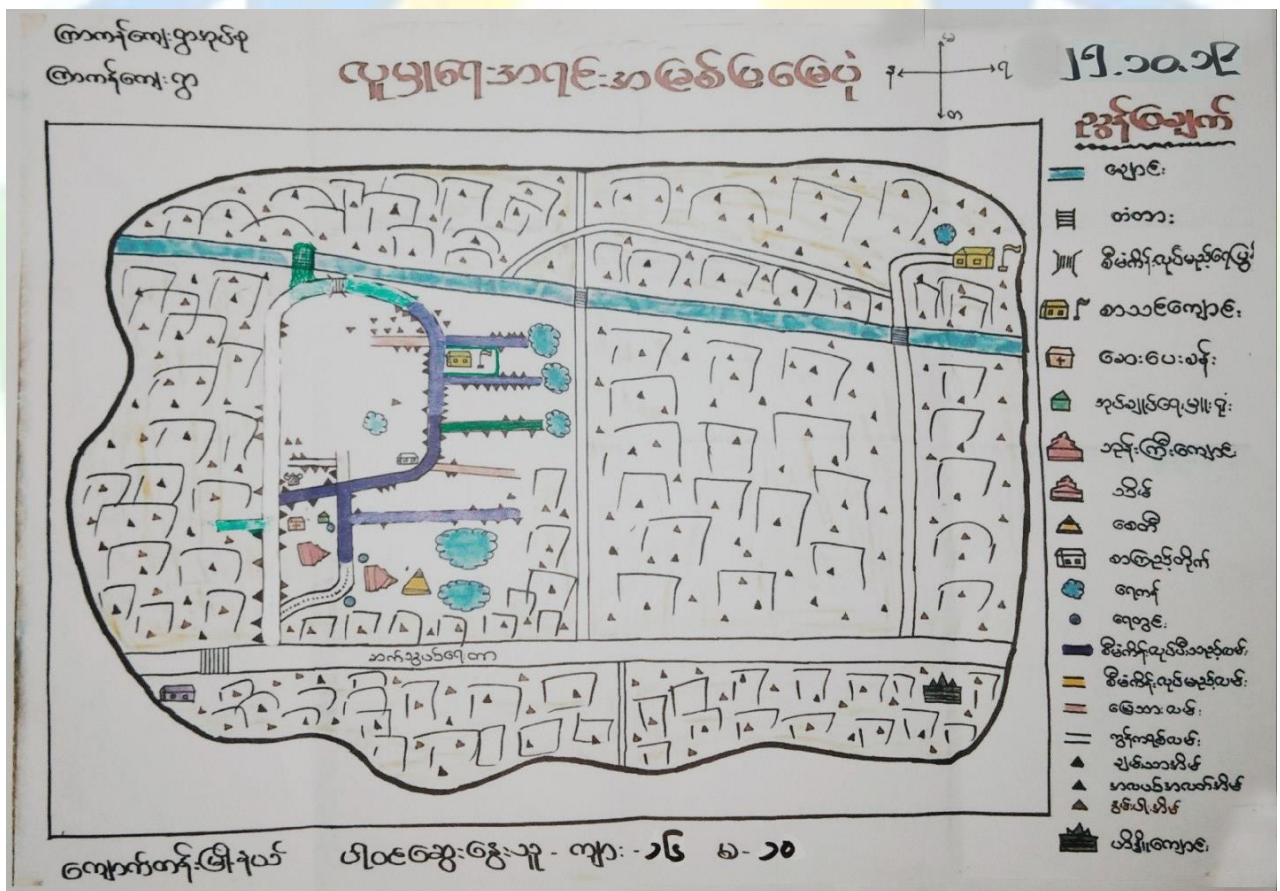 ကြာကန်ကျေးရွာအုပ်စု
ကြာကန်ကျေးရွာ
လူမှုရေးအရင်းအမြစ်ပြမြေပုံ
မ
န
ရ
တ
၂၅.၁၀.၁၉
ညွှန်ပြချက်
ချောင်း
တံတား
စာသင်ကျောင်း
ဆေးပေးခန်း
အုပ်ချုပ်ရေးမှူးရုံး
ဘုန်းကြီးကျောင်း
သိမ်
စေတီ
စာကြည့်တိုက်
ရေကန်
ရေတွင်း
စီမံကိန်းလုပ်ပြီးသည့်လမ်း
စီမံကိန်းလုပ်မည့်လမ်း
မြေသားလမ်း
ကွန်ကရစ်လမ်း
ချမ်းသာအိမ်
အလယ်အလတ်အိမ်
နွမ်းပါးအိမ်
ဟိန္ဒူကျောင်း
ကျောက်တန်းမြို့နယ်
ပါဝင်ဆွေးနွေးသူ - ကျား - ၁၆ မ - ၁၀